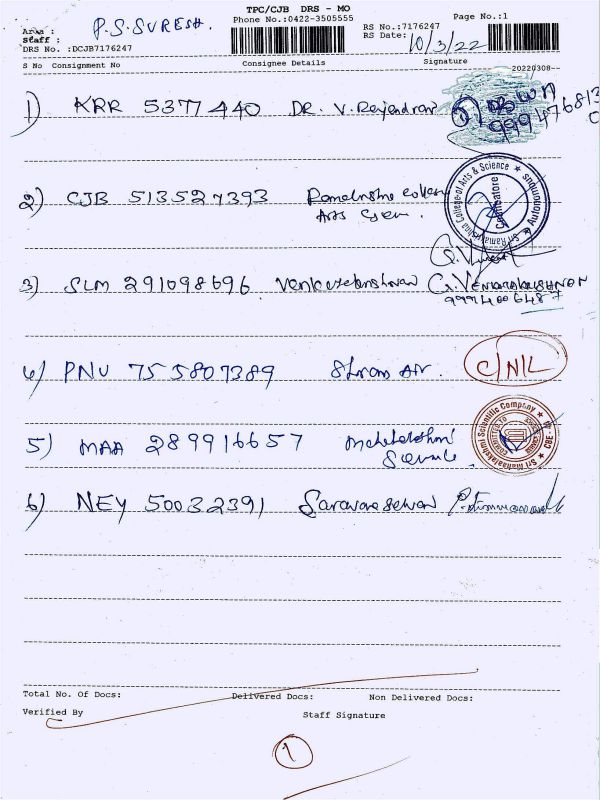 TPC/CJB DRS - MO
Area : P.S.SURESH.
Phone No.:0422-3505555
Page No.:1
Staff :
RS No.:7176247
DRS No. :DCJB7176247
RS Date: 10/3/22
S No Consignment No Consignee Details Signature
20220308--
1) KRR 5377440 DR. V. Rajendran
2) CJB 513527393 College
Arts
Sri Ramakrishna College of Arts & Science ★ Autonomous ★
Coimbatore
3) SLM 291098696 Venkatakrishnan G. VENKATAKRISHNAN
9994006487
4) PNU 755807389 Air. C/N/L
5) MAA 289916657 Mahalakshmi
Sri Mahalakshmi Scientific Company ★ CBE ★
6) NEY 50032391
Total No. Of Docs: Delivered Docs: Non Delivered Docs:
Verified By Staff Signature
1